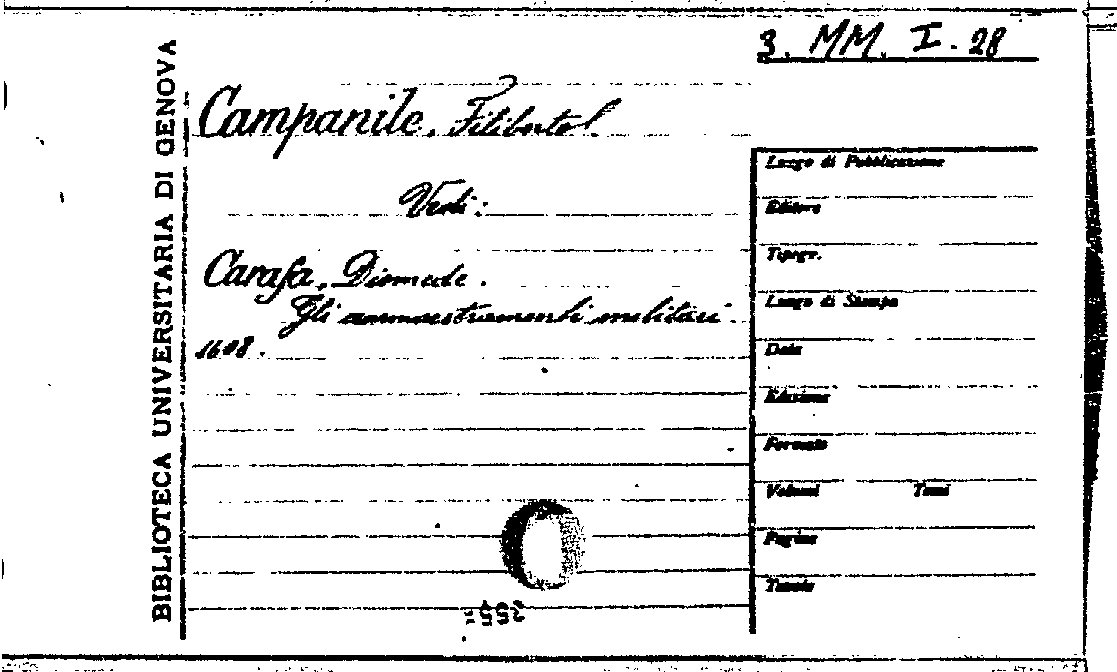 3. MM. I. 28
BIBLIOTECA UNIVERSITARIA DI GENOVA
Campanile, Filiberto.
Vedi:
Carafa, Diomede.
Gli ammaestramenti militari.
1608.
Luogo di Pubblicazione
Editore
Tipogr.
Luogo di Stampa
Data
Edizione
Formato
Volumi Tomi
Pagine
Tavole